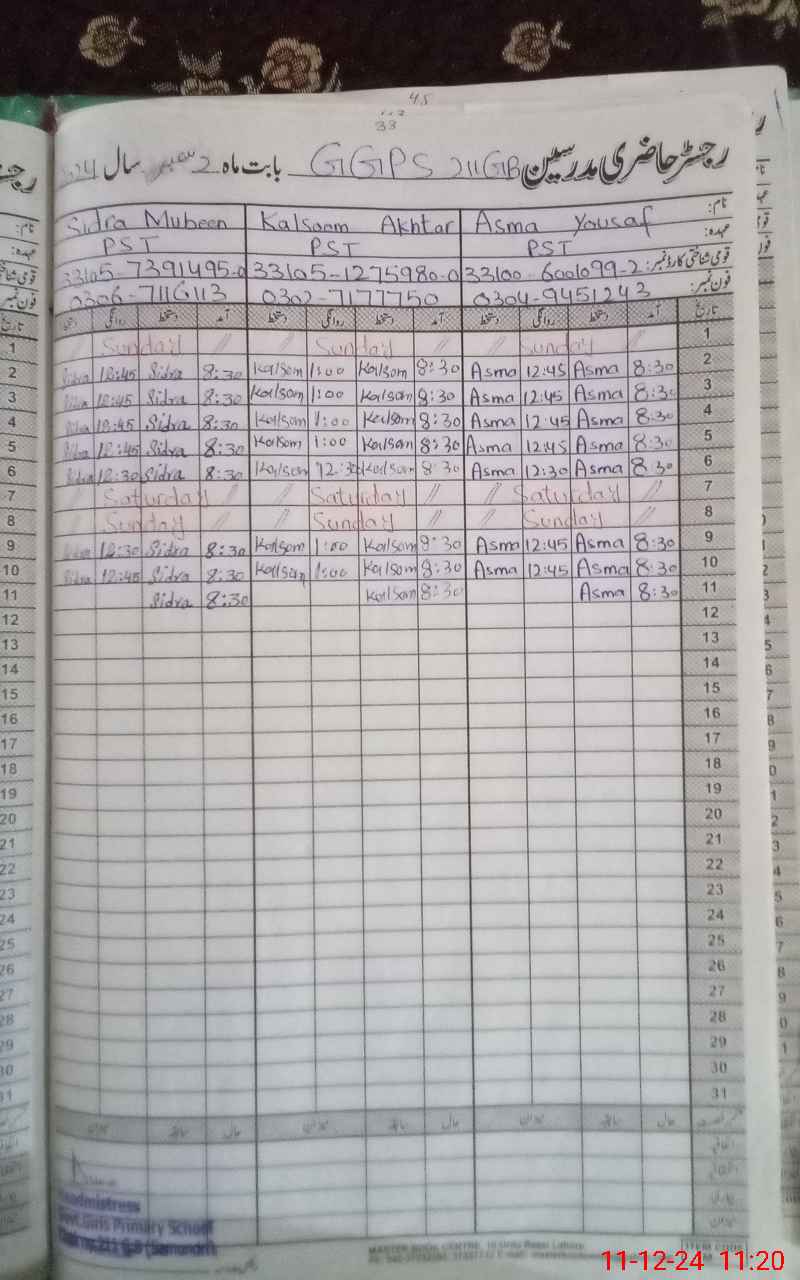 45
33
رجسٹر حاضری مدرسین GGPS 211GB بابت ماہ دسمبر سال
نام: Asma Yousaf Kalsoom Akhtar Sidra Mubeen
عہدہ: PST PST PST
قومی شناختی کارڈ نمبر: 33100-6001099-2 33105-1275980-0 33105-7391495-0
فون نمبر: 0304-9451243 0302-7177750 0306-7116113
تاریخ آمد دستخط روانگی دستخط آمد دستخط روانگی دستخط آمد دستخط روانگی دستخط
1 Sunday Sunday Sunday
2 8:30 Asma 12:45 Asma 8:30 Kalsom 1:00 Kalsom 8:30 Sidra 12:45 Sidra
3 8:30 Asma 12:45 Asma 8:30 Kalsom 1:00 Kalsom 8:30 Sidra 12:45 Sidra
4 8:30 Asma 12:45 Asma 8:30 Kalsom 1:00 Kalsom 8:30 Sidra 12:45 Sidra
5 8:30 Asma 12:45 Asma 8:30 Kalsom 1:00 Kalsom 8:30 Sidra 12:45 Sidra
6 8:30 Asma 12:30 Asma 8:30 Kalsom 12:30 Kalsom 8:30 Sidra 12:30 Sidra
7 Saturday Saturday Saturday
8 Sunday Sunday Sunday
9 8:30 Asma 12:45 Asma 8:30 Kalsom 1:00 Kalsom 8:30 Sidra 12:30 Sidra
10 8:30 Asma 12:45 Asma 8:30 Kalsom 1:00 Kalsom 8:30 Sidra 12:45 Sidra
11 8:30 Asma 8:30 Kalsom 8:30 Sidra
12
13
14
15
16
17
18
19
20
21
22
23
24
25
26
27
28
29
30
31
Headmistress
Govt. Girls Primary School
211 G.B (Samundri)
MASTER BOOK CENTRE, 10 Urdu Bazar Lahore
ITEM CODE
11-12-24 11:20